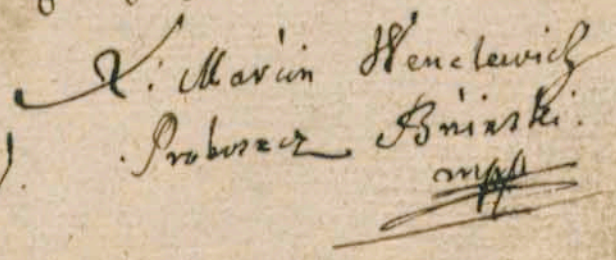 X: Marcin Wenclewicz
Proboszcz Bninski.
mpp